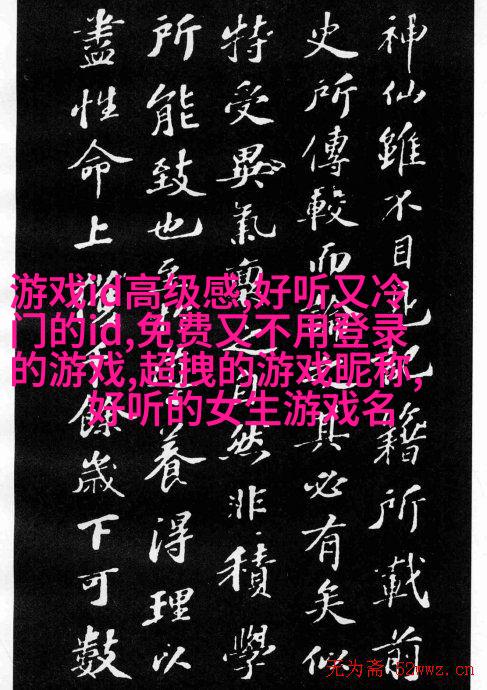 神仙雖不目記籍所載前
史所傳較而論之其必有矣似
特受異氣稟之自然非積學
所能致也至養得理以
盡性命上餘歲下可數
游戏id高级感,好听又冷
门的id,免费又不用登录
的游戏,超拽的游戏昵称,
好听的女生游戏名
无为斋·52wwz.cn